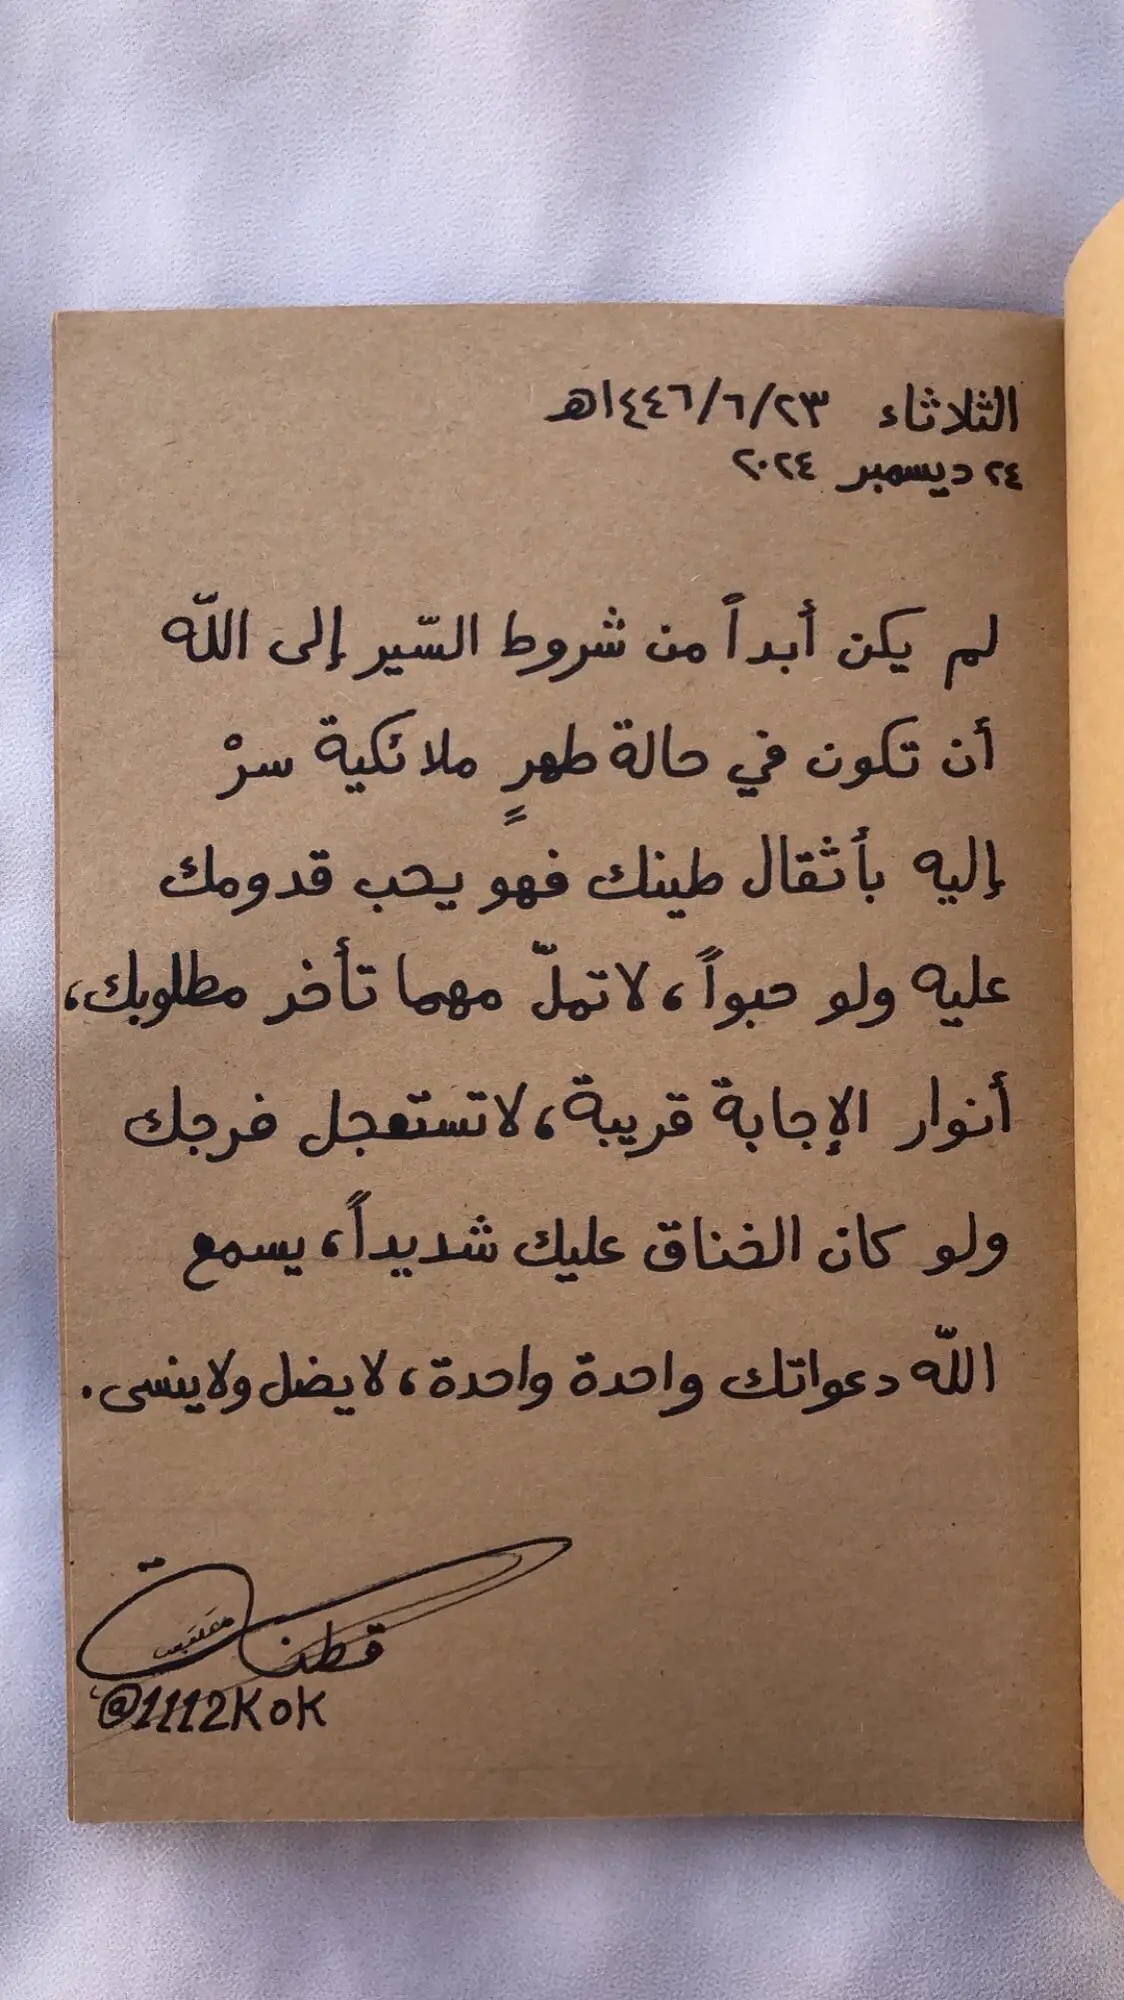 الثلاثاء ٢٣/٦/١٤٤٦هـ
٢٤ ديسمبر ٢٠٢٤
لم يكن أبداً من شروط السّير إلى اللّه
أن تكون في حالة طهرٍ ملائكية سرْ
إليه بأثقال طينك فهو يحب قدومك
عليه ولو حبواً، لا تملّ مهما تأخر مطلوبك،
أنوار الإجابة قريبة، لا تستعجل فرجك
ولو كان الخناق عليك شديداً، يسمع
اللّه دعواتك واحدة واحدة، لا يضل ولا ينسى.
@1112KoK